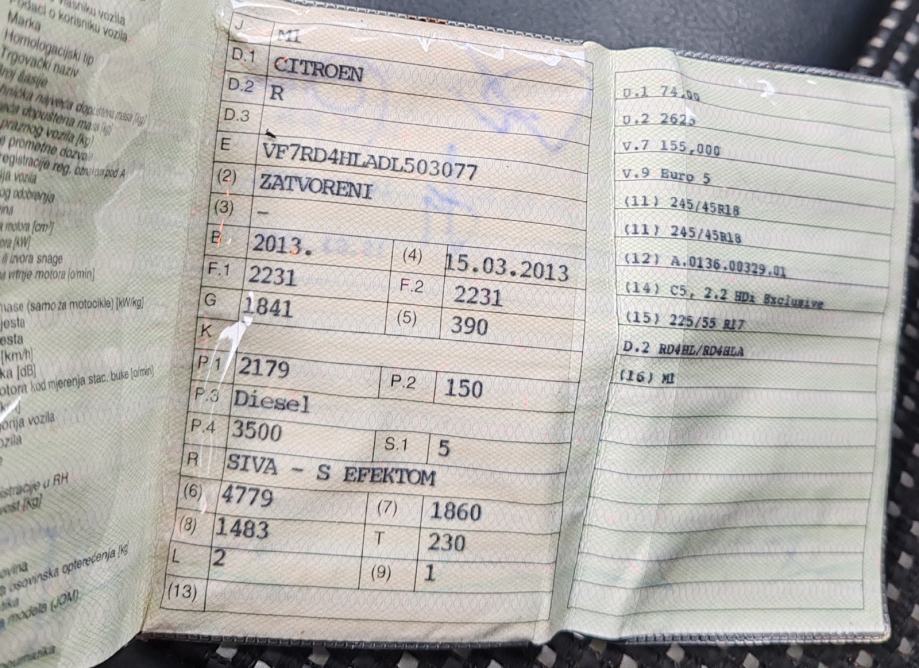 vlasniku vozila
Podaci o korisniku vozila
Marka
Homologacijski tip
Trgovački naziv
Broj šasije
najveća dopuštena masa [kg]
dopuštena masa [kg]
praznog vozila [kg]
prometne dozvole
registracije reg.
vozila
og odobrenja
motora [cm³]
[kW]
ili izvora snage
vrtnje motora [o/min]
mase (samo za motocikle) [kW/kg]
jesta
esta
[km/h]
ka [dB]
otora kod mjerenja stac. buke [o/min]
orija vozila
ozila
istracije u RH
vost [kg]
ovina
osovinska opterećenja [kg]
modela (JOM)
J MI
D.1 CITROEN
D.2 R
D.3
E VF7RD4HLADL503077
(2) ZATVORENI
(3) –
B 2013. (4) 15.03.2013
F.1 2231 F.2 2231
G 1841 (5) 390
K
P.1 2179 P.2 150
P.3 Diesel
P.4 3500 S.1 5
R SIVA - S EFEKTOM
(6) 4779 (7) 1860
(8) 1483 T 230
L 2 (9) 1
(13)
U.1 74,00
U.2 2625
V.7 155,000
V.9 Euro 5
(11) 245/45R18
(11) 245/45R18
(12) A.0136.00329.01
(14) C5, 2.2 HDi Exclusive
(15) 225/55 R17
D.2 RD4HL/RD4HLA
(16) MI